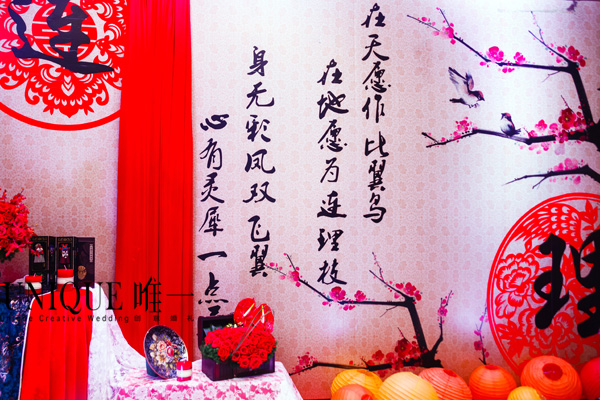 在天愿作比翼鸟
在地愿为连理枝
身无彩凤双飞翼
心有灵犀一点
連
理
UNIQUE 唯一
Creative Wedding 创意婚礼